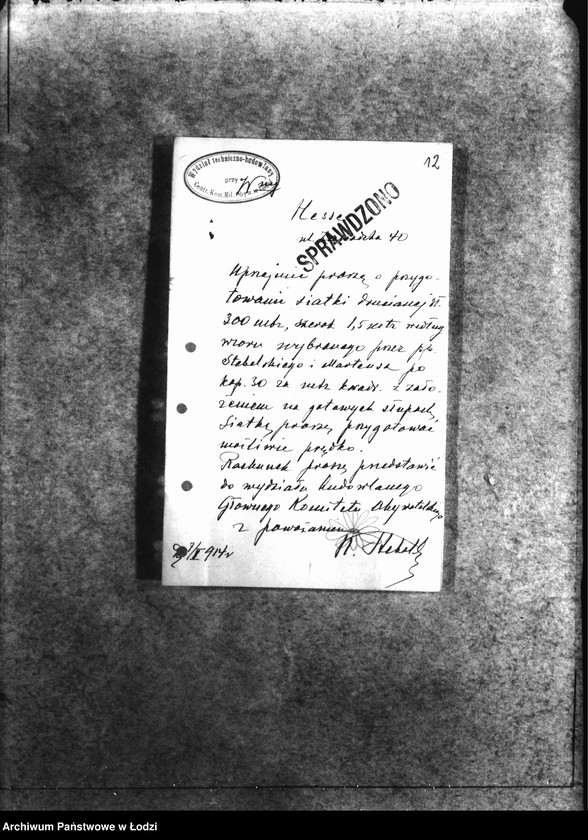 12
Wydział techniczno-budowlany
przy
Centr. Kom. Mil. Obyw.
Hesse
SPRAWDZONO
ul. 40
Uprzejmie proszę o przygo-
towanie siatki drucianej dł.
300 mtr, szerok 1,5 mtr według
wzoru wybranego przez p.p.
Stebelskiego i Martensa po
kop. 30 za mtr kwadr. z zało-
żeniem na gotowych słupach.
Siatkę proszę przygotować
możliwie prędko.
Rachunek proszę przedstawić
do wydziału budowlanego
Głównego Komitetu Obywatelskiego
z poważaniem
914 r
Archiwum Państwowe w Łodzi